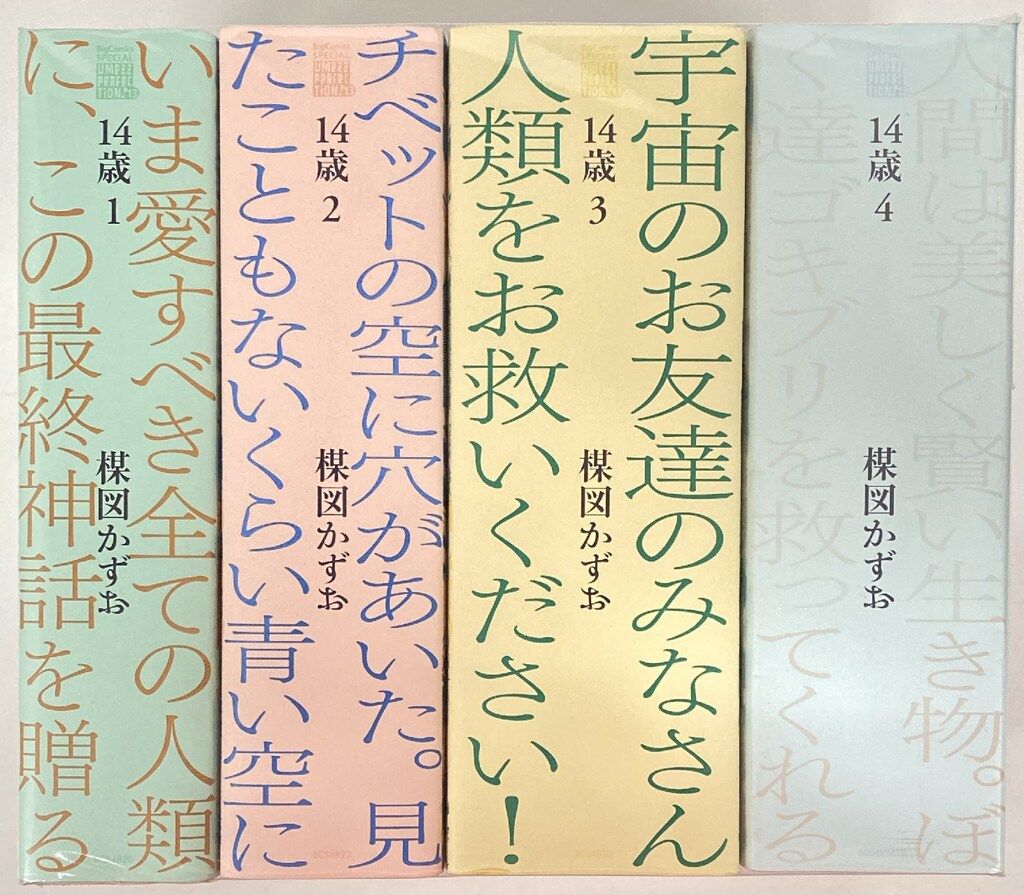 BigComics
SPECIAL
UMEZZ
PERFEC
TION! 13
いま愛すべき全ての人類
に、この最終神話を贈る
14歳 1
楳図かずお
BigComics
SPECIAL
UMEZZ
PERFEC
TION! 13
チベットの空に穴があいた。見
たこともないくらい青い空に
14歳 2
楳図かずお
BigComics
SPECIAL
UMEZZ
PERFEC
TION! 13
宇宙のお友達のみなさん
人類をお救いください！
14歳 3
楳図かずお
人間は美しく賢い生き物。ぼ
く達ゴキブリを救ってくれる
14歳 4
楳図かずお